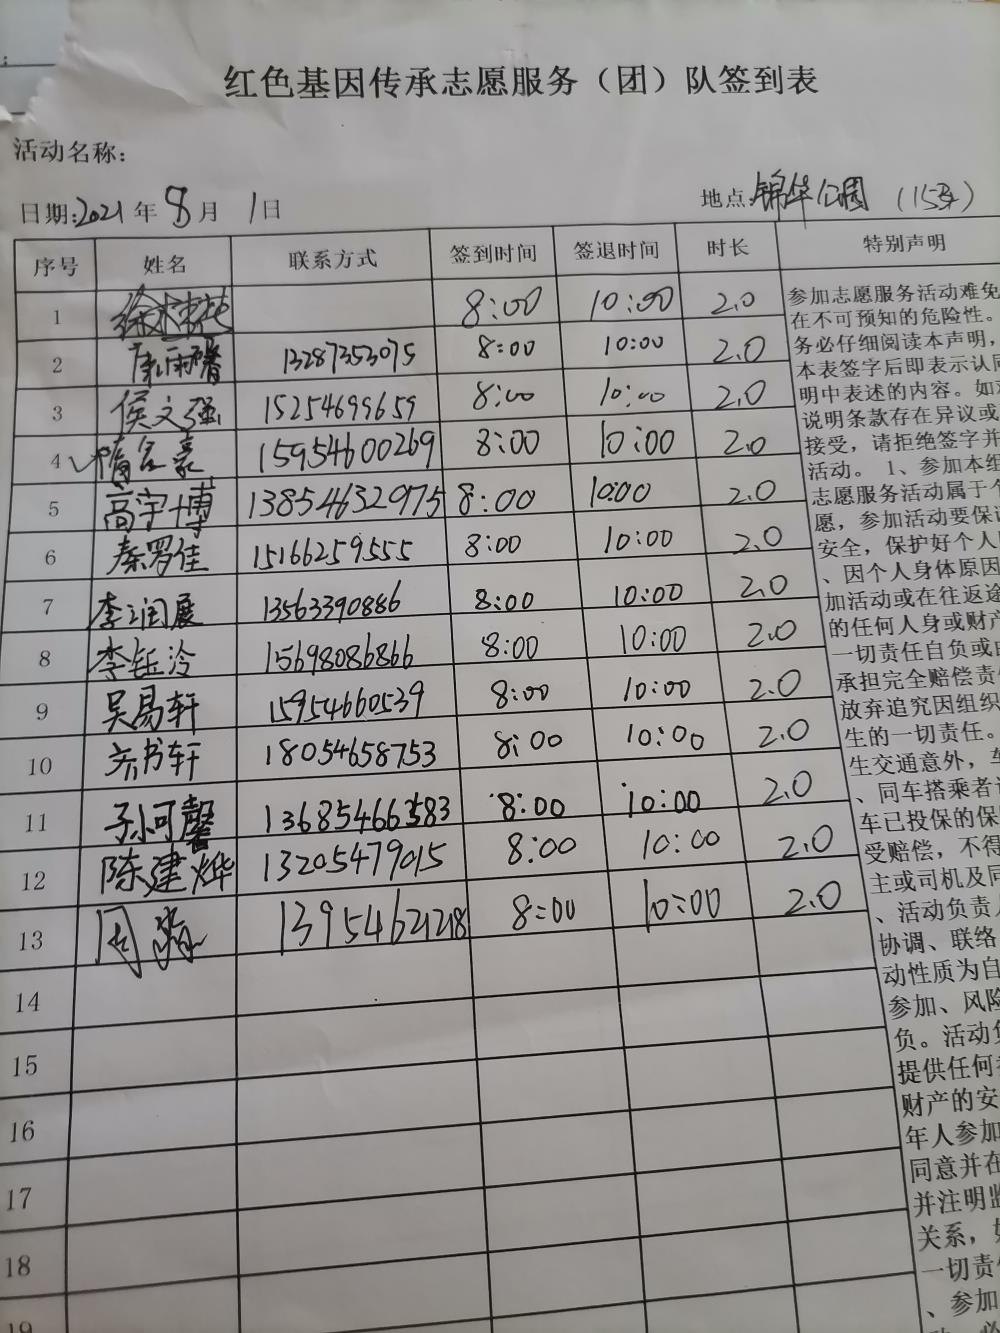 红色基因传承志愿服务（团）队签到表
活动名称：
日期:2021年8月1日
地点:锦华公园（15名）
序号 姓名 联系方式 签到时间 签退时间 时长 特别声明
1 8:00 10:00 2.0
2 13287353075 8:00 10:00 2.0
3 侯文强 15254699659 8:00 10:00 2.0
4 15954600269 8:00 10:00 2.0
5 高宇博 13854632975 8:00 10:00 2.0
6 秦罗佳 15166259555 8:00 10:00 2.0
7 李润展 13563390886 8:00 10:00 2.0
8 李钰泠 15698086866 8:00 10:00 2.0
9 吴易轩 15954660539 8:00 10:00 2.0
10 齐书轩 18054658753 8:00 10:00 2.0
11 孙可馨 13685466583 8:00 10:00 2.0
12 陈建烨 13205479015 8:00 10:00 2.0
13 周 13954621218 8:00 10:00 2.0
14
15
16
17
18
19
参加志愿服务活动难免
在不可预知的危险性。
务必仔细阅读本声明，
本表签字后即表示认同
明中表述的内容。如对
说明条款存在异议或
接受，请拒绝签字并
活动。1、参加本组
志愿服务活动属于个
愿，参加活动要保证
安全，保护好个人
、因个人身体原因
加活动或在往返途
的任何人身或财产
一切责任自负或由
承担完全赔偿责任
放弃追究因组织
生的一切责任。
生交通意外，车
、同车搭乘者
车已投保的保
受赔偿，不得
主或司机及同
、活动负责人
协调、联络
动性质为自
参加、风险
负。活动负
提供任何
财产的安
年人参加
同意并在
并注明监
关系，如
一切责任
、参加